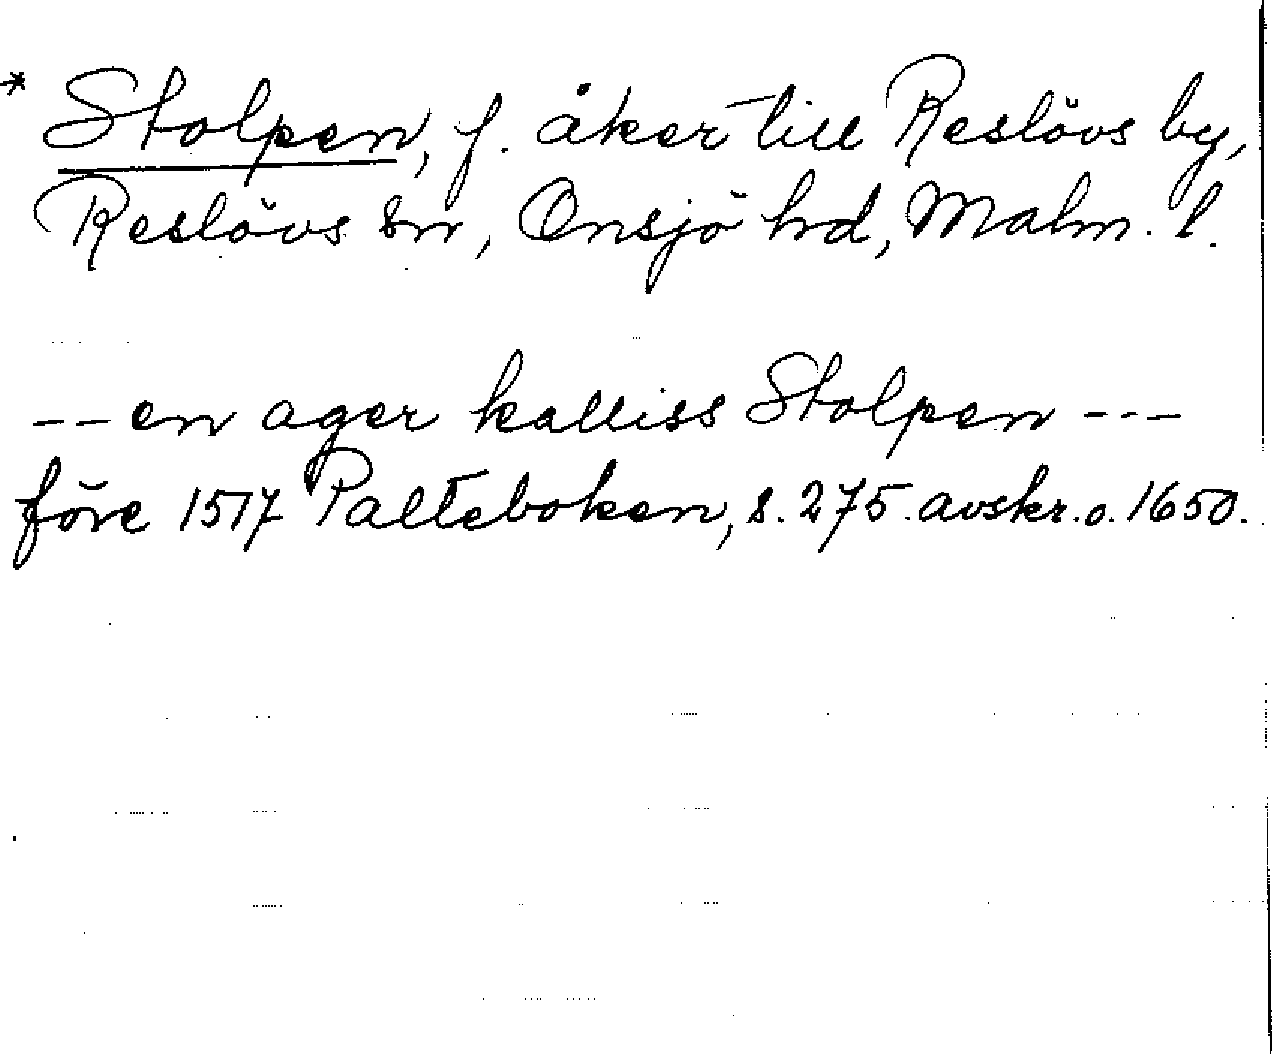 * Stolpen, f. åker till Reslövs by,
Reslövs sn, Onsjö hd, Malm. l.
-- en ager kalliss Stolpen ---
före 1517 Palteboken, s. 275. avskr. o. 1650.